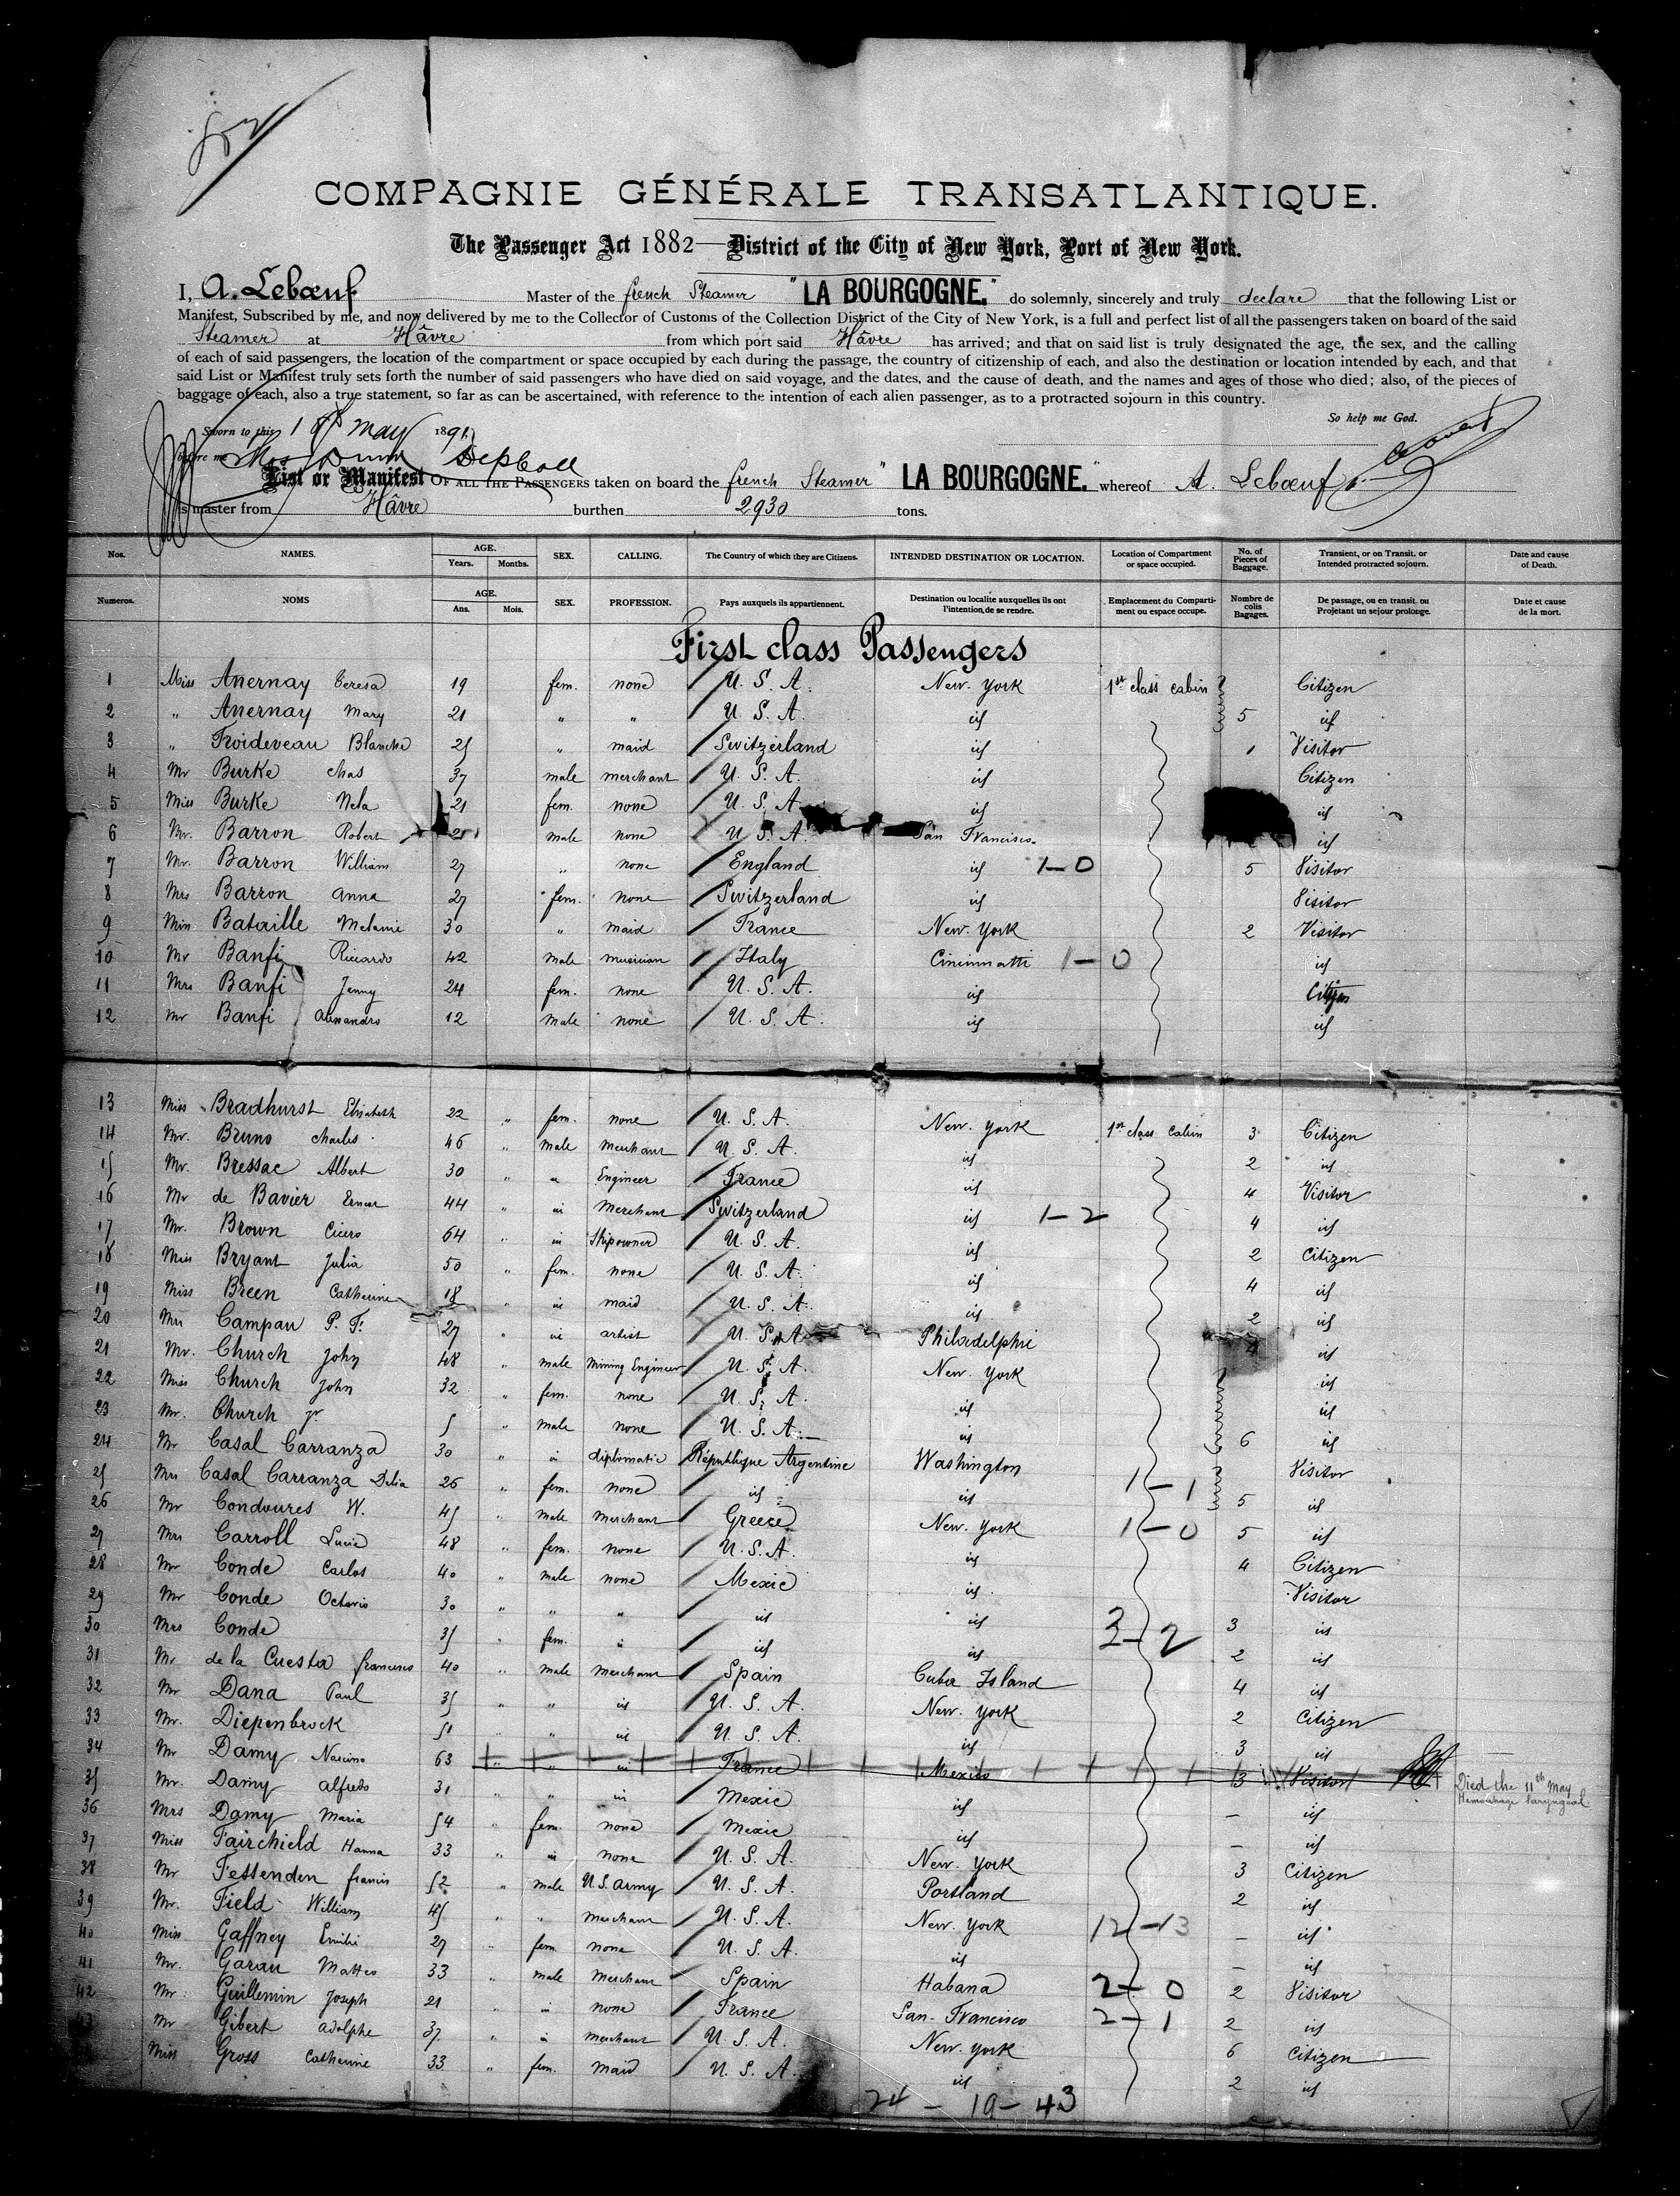 852
COMPAGNIE GÉNÉRALE TRANSATLANTIQUE.
The Passenger Act 1882—District of the City of New York, Port of New York.
I, A. Lebœuf Master of the french Steamer "LA BOURGOGNE." do solemnly, sincerely and truly declare that the following List or
Manifest, Subscribed by me, and now delivered by me to the Collector of Customs of the Collection District of the City of New York, is a full and perfect list of all the passengers taken on board of the said
Steamer at Hâvre from which port said Hâvre has arrived; and that on said list is truly designated the age, the sex, and the calling
of each of said passengers, the location of the compartment or space occupied by each during the passage, the country of citizenship of each, and also the destination or location intended by each, and that
said List or Manifest truly sets forth the number of said passengers who have died on said voyage, and the dates, and the cause of death, and the names and ages of those who died; also, of the pieces of
baggage of each, also a true statement, so far as can be ascertained, with reference to the intention of each alien passenger, as to a protracted sojourn in this country.
So help me God.
Sworn to this 18 May 1891
before me Dunn Dep Coll
List or Manifest OF ALL THE PASSENGERS taken on board the french Steamer "LA BOURGOGNE." whereof A. Lebœuf
is master from Hâvre burthen 2930 tons.
Nos. NAMES. AGE. Years. Months. SEX. CALLING. The Country of which they are Citizens. INTENDED DESTINATION OR LOCATION. Location of Compartment or space occupied. No. of Pieces of Baggage. Transient, or on Transit. or Intended protracted sojourn. Date and cause of Death.
Numeros. NOMS AGE. Ans. Mois. SEX. PROFESSION. Pays auxquels ils appartiennent. Destination ou localite auxquelles ils ont l'intention, de se rendre. Emplacement du Comparti-ment ou espace occupe. Nombre de colis Bagages. De passage, ou en transit. ou Projetant un sejour prolonge. Date et cause de la mort.
First class Passengers
1 Miss Anernay Teresa 19 fem. none U. S. A. New. York 1st class cabin Citizen
2 " Anernay Mary 21 " " U. S. A. id 5 id
3 " Froideveau Blanche 25 " maid Switzerland id 1 Visitor
4 Mr Burke Chas 37 male merchant U. S. A. id Citizen
5 Miss Burke Nela 21 fem. none U. S. A id id
6 Mr. Barron Robert 25 male none U. S. A. San Francisco. id
7 Mr. Barron William 27 " none England id 1—0 5 Visitor
8 Mrs Barron Anna 27 fem. none Switzerland id Visitor
9 Miss Bataille Melanie 30 " maid France New. York 2 Visitor
10 Mr Banfi Ricciardo 42 male musician Italy Cincinnatti 1—0 id
11 Mrs Banfi Jenny 24 fem. none U. S. A. id Citizen
12 Mr Banfi Alessandro 12 male none U. S. A. id id
13 Miss Bradhurst Elisabeth 22 " fem. none U. S. A. New. York 1st class cabin 3 Citizen
14 Mr. Bruno Charles 46 " male merchant U. S. A. id 2 id
15 Mr. Bressac Albert 30 " " Engineer France id 4 Visitor
16 Mr de Bavier Ernest 44 " id Merchant Switzerland id 1—2 4 id
17 Mr. Brown Cicero 64 " id Shipowner U. S. A. id 2 Citizen
18 Miss Bryant Julia 50 " fem. none U. S. A. id 4 id
19 Miss Breen Catherine 18 " id maid U. S. A. id 2 id
20 Mrs Campau P. F. 27 " id artist U. S. A Philadelphi 4 id
21 Mr. Church John 48 " male Mining Engineer U. S. A. New. York id
22 Miss Church John 32 " fem. none U. S. A. id id
23 Mr. Church jr 5 " male none U. S. A. id 6 id
24 Mr Casal Carranza 30 " id diplomatic République Argentine Washington Visitor
25 Mrs Casal Carranza Delia 26 " fem. none id id 1—1 5 id
26 Mr Condoures W. 45 " male merchant Greece New. York 1—0 5 id
27 Mrs Carroll Lucie 48 " fem. none U. S. A. id 4 Citizen
28 Mr Conde Carlos 40 " male none Mexic id Visitor
29 Mr Conde Octavio 30 " " " id id 3 id
30 Mrs Conde 35 " fem. " id id 3—2 2 id
31 Mr de la Cuesta francisco 40 " male merchant Spain Cuba Island 4 id
32 Mr Dana Paul 35 " " id U. S. A. New. York 2 Citizen
33 Mr. Diepenbrock 51 " id U. S. A. id 3 id
34 Mr Damy Narcisso 63 " " id France Mexico 3 Visitor Died the 11th May Hemorrhage laryngeal
35 Mr. Damy Alfredo 31 " " id Mexic id — id
36 Mrs Damy Maria 54 " fem. none Mexic id — id
37 Miss Fairchield Hanna 33 " id none U. S. A. New. York 3 Citizen
38 Mr Fessenden francis 52 " male U.S. army U. S. A. Portland 2 id
39 Mr. Field William 45 " " merchant U. S. A. New. York 12—13 — id
40 Miss Gaffney Emilie 27 " fem. none U. S. A. id — id
41 Mr. Garau Matteo 33 " male merchant Spain Habana 2—0 2 Visitor
42 Mr. Guillemin Joseph 21 " id none France San-Francisco 2—1 2 id
43 Mr Gibert adolphe 37 " id merchant U. S. A. New. York 6 Citizen
Miss Gross Catherine 33 " fem. maid U. S. A. id 2 id
24 — 19 — 43